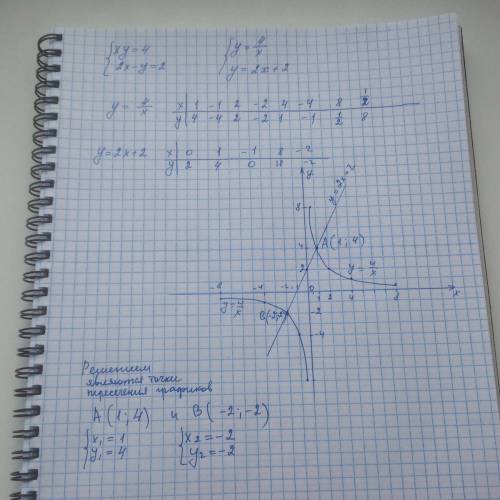 { xy = 4    { y = 4/x
{ 2x - y = 2    { y = 2x + 2
y = 4/x    x | 1 -1 2 -2 4 -4 8 1/2
y | 4 -4 2 -2 1 -1 1/2 8
y = 2x + 2    x | 0 1 -1 8 -2
y | 2 4 0 18 -2
y
y = 2x + 2
8
4 A(1; 4)
2 y = 4/x
-8 -4 -1 0 1 2 4 8 x
y = 4/x
B(-2;-2) -2
-4
Решением
являются точки
пересечения графиков
A(1; 4) и B(-2; -2)
{ x₁ = 1    { x₂ = -2
{ y₁ = 4    { y₂ = -2